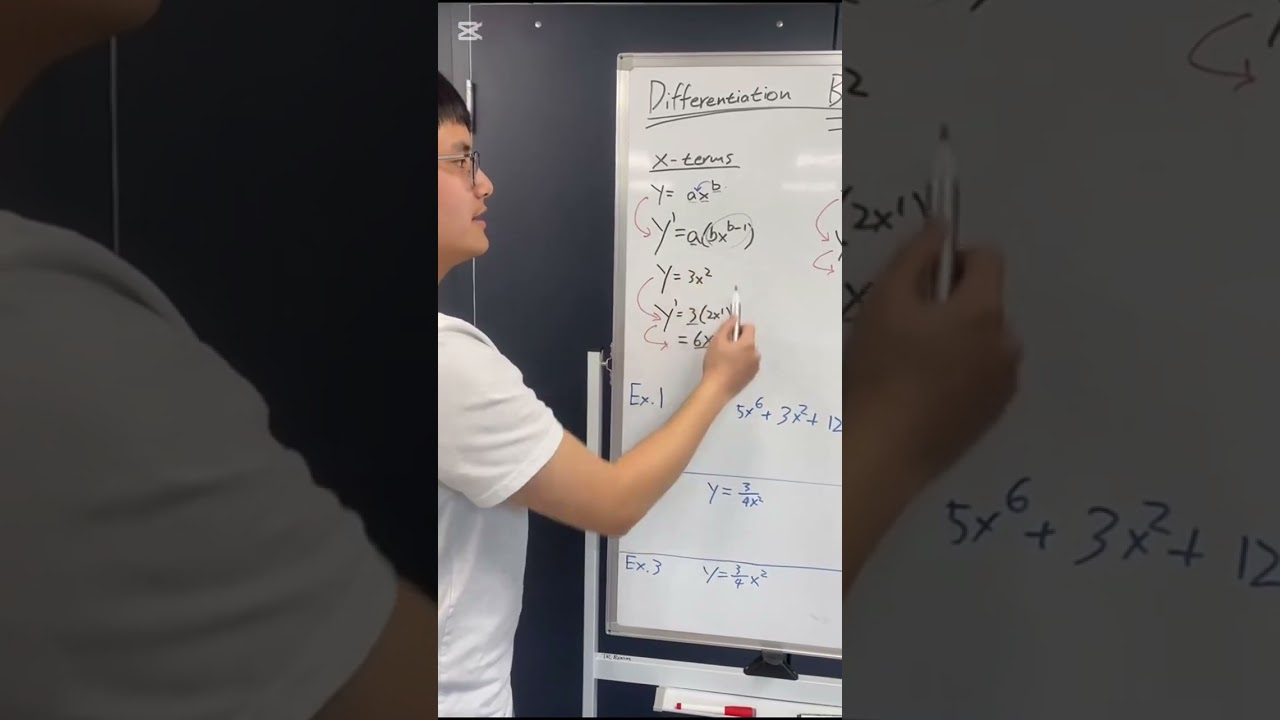 Differentiation B
x-terms
y = ax^b
y' = a(bx^(b-1))
y = 3x²
y' = 3(2x¹)
= 6x
Ex.1
5x⁶ + 3x² + 12
y = 3/4x²
Ex.3
y = 3/4 x²
2
2x¹)
5x⁶ + 3x² + 12